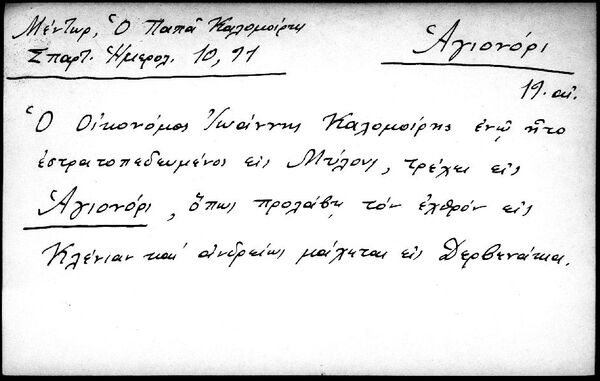 Μέντωρ, Ὁ Παπᾶ Καλομοίρης
Σπαρτ. Ἡμερολ. 10, 91
Ἁγιονόρι
19. αἰ.
Ὁ Οἰκονόμος Ἰωάννης Καλομοίρης ἐνῷ ἦτο
ἐστρατοπεδευμένος εἰς Μύλους, τρέχει εἰς
Ἁγιονόρι, ὅπως προλάβῃ τόν ἐχθρόν εἰς
Κλένιαν καί ἀνδρείως μάχεται εἰς Δερβενάκια.